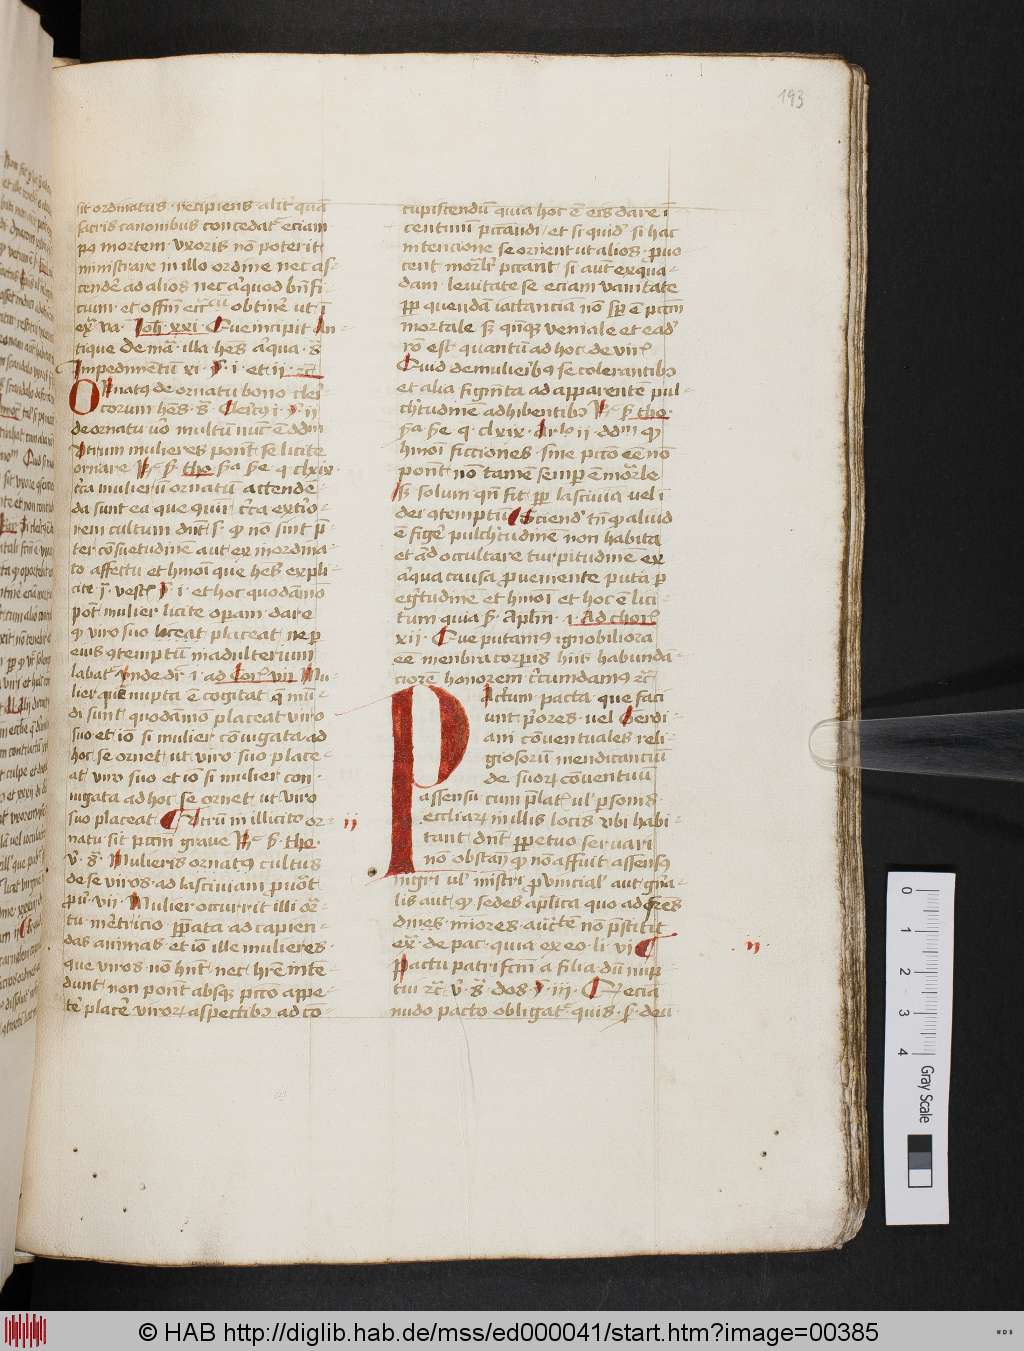 193
sit ordinatus · recipiens alit̄ quā
sacris canonibus concedat̄ eciam
mortem · vxoris nō poterit
ministrare in illo ordine nec as-
cender̄ ad alios nec aliquod
cium · et offm̄ obtiner̄ ut ī
Joh̄ · xxi · Que incipit An-
tique De illa hes aqua · s̄
Impedimentū xi · i · et ii · rc̄
Ornatus de ornatu bono cleri-
corum hēs · s̄ Clericus i · ii
de ornatu vō multū nuc̄ ē
Vtrum mulieres pon̄t se licite
ornare R̄ s̄ tho · q · clxix ·
cīca mulierū ornatum attendē-
da sunt ea que circa exterio-
rem cultum p̄-
ter cōsuetudinē aut ex inordina-
to affectu et hmōi que hes expli-
cite ī · vest̄ i · et hoc quodāmō
pot̄ mulier licite operam dare
ꝙ viro suo placeat ne per
eius ꝯtemptū in adulterium
labat̄ Vnde dr̄ · i · ad Cor̄ · vii Mu-
lier que nupta ē cogitat q̄ mū-
di sunt quodāmō placeat viro
suo et iō si mulier cōiugata ad
hoc se ornet ut viro suo place-
at viro suo et iō si mulier con-
iugata ad hoc se ornet ut viro
suo placeat Vtrū in illicito or-
natu sit pccm̄ graue R̄ s̄ tho ·
v̄ · s̄ · Mulieris ornatꝯ cultus
de se viros · ad lasciuiam
vii · Mulier occurrit illi or-
tu meretricio p̄parata ad capien-
das animas et iō ille mulieres ·
que viros nō hnt̄ nec hr̄e inten-
dunt non pon̄t absqꝫ pccō appe-
ter̄ placer̄ viroꝝ aspectibꝯ ad cō-
cupiscendū quia hoc ē eis dare ī
centiuū peccandi / et si quid̄ si hac
intencione se ornent ut alios · puo
cent mortalit̄ peccant si aut̄ ex qua-
dam leuitate se eciam vanitate
ꝑꝑ quendā iactanciam nō sp̄ ē pccm̄
mortale sꝫ qn̄qꝫ veniale et ead̄
ro est quantū ad hoc de viris
Quid de mulieribꝯ se colerantibꝯ
et alia figmenta ad apparentē pul-
chtudinē adhibentibꝯ R̄ s̄ tho ·
q · clxix · Ar̄ ii · ꝙ
hmōi ficciones · sine pccō eē nō
pon̄t nō tamē semp ē mortale
sꝫ solum qn̄ fit ꝑꝑ lasciuiā vel ī
dei ꝯtemptū Sciend̄ tn̄ ꝙ aliud
ē finger̄ pulchritudinē non habita
et ad occultare turpitudinē ex
aliqua causa pueniente puta p
egtudine et hmōi et hoc ē lici
tum quia s̄ · Aplm̄ · i · Ad chor̄
xii · Que putamꝯ ignobiliora
eē menbra corpis hiis habundā-
ciorē honorem circumdamꝯ rc̄
Pactum pacta · que faci
unt p̄ores · vel Gerdi-
ani cōuentuales reli-
giosorū mendicantiū
de suoꝝ cōuentuū
assensu cum p̄latis ul̄ psonis
eccliaꝝ in illis locis vbi habi-
tant dn̄t perpetuo seruari
nō obstan̄ ꝙ nō affuit assensꝯ
mgri ul̄ mistri puincial̄ aut gn̄a-
lis aut ꝙ sedes aplica quo ad
dines miores nō p̄stitit
ex̄ · de pac · quia ex eo · li vi
Pactu patri fcm̄ a filia dū nup
tui rc̄ v̄ · s̄ · dos · iii · Ex eciā
nudo pacto obligat̄ quis · s̄ · deu
ii
ii
0
1
2
3
4
Gray Scale
© HAB http://diglib.hab.de/mss/ed000041/start.htm?image=00385
WDB